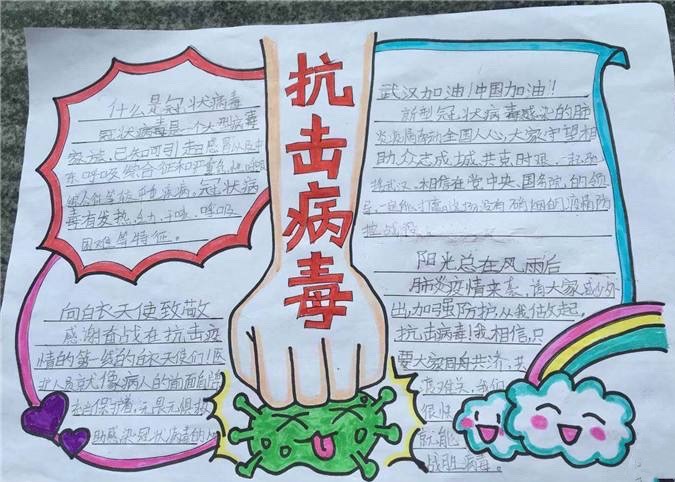 抗击病毒
什么是冠状病毒
冠状病毒是一个大型病毒
家族,已知可引起感冒以及中
东呼吸综合征和严重急性呼吸
综合征等较严重疾病。冠状病
毒有发热、乏力、干咳、呼吸
困难等特征。
向白衣天使致敬
感谢奋战在抗击疫
情的第一线的白衣天使们!医
护人员就像病人的前面
保护着,无畏无惧
助感染冠状病毒的
武汉加油!中国加油!!
新型冠状病毒感染的肺
炎疫情牵动全国人心,大家守望相
助,众志成城,共克时艰,
武汉。相信在党中央、国务院的领
导,一定能打赢这场没有硝烟的疫情防
控战役。
阳光总在风雨后
肺炎疫情来袭,请大家减少外
出,加强防护从我做起。
抗击病毒!我相信,只
要大家同舟共济,共
度难关,我们
很快
就能
战胜病毒。